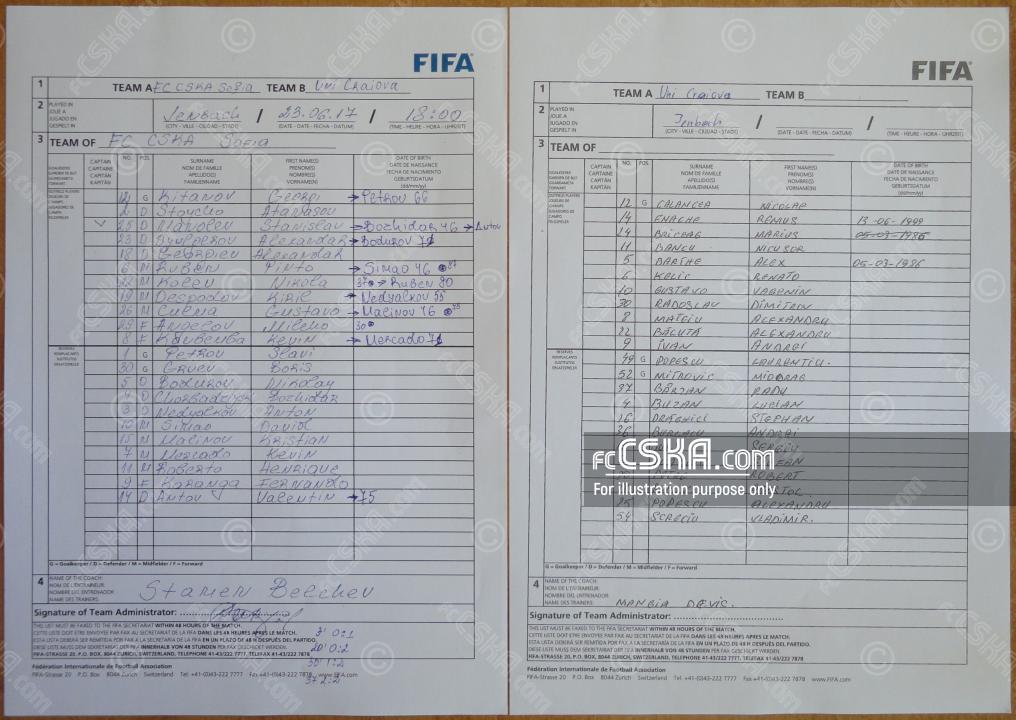 FIFA
1 TEAM A FC CSKA Sofia TEAM B Uni Craiova
2 PLAYED IN
JOUE A
JUGADO EN
GESPIELT IN
Jenbach / 23.06.17 / 18:00
(CITY - VILLE - CIUDAD - STADT) (DATE - DATE - FECHA - DATUM) (TIME - HEURE - HORA - UHRZEIT)
3 TEAM OF FC CSKA Sofia
CAPTAIN
CAPITAINE
CAPITÁN
KAPITÄN
NO. POS.
SURNAME
NOM DE FAMILLE
APELLIDO(S)
FAMILIENNAME
FIRST NAME(S)
PRENOM(S)
NOMBRE(S)
VORNAME(N)
DATE OF BIRTH
DATE DE NAISSANCE
FECHA DE NACIMIENTO
GEBURTSDATUM
(dd/mm/yy)
12 G Kitanov Georgi → Petrov 66
2 D Stoycho Atanasov
25 D Manolev Stanislav → Bozhidar 46 → Antov
23 D Dyulgerov Alexandar → Bodurov 71
18 D Georgiev Alexandar
6 M Ruben Pinto → Simao 46
22 M Kolev Nikola → Ruben 80
19 M Despodov Kiril → Nedyalkov 55
26 M Cuena Gustavo → Malinov 46
29 F Angelov Mileno 30
8 F Koubemba Kevin → Mercado 71
RESERVES
REMPLAÇANTS
SUSTITUTOS
ERSATZSPIELER
1 G Petrov Slavi
30 G Gruev Boris
5 D Bodurov Nikolay
4 D Chorbadzhiyski Bozhidar
3 D Nedyalkov Anton
10 M Simao David
15 M Malinov Kristian
7 M Mercado Kevin
11 M Roberto Henrique
9 F Karanga Fernando
14 D Antov Valentin → 75
G = Goalkeeper / D = Defender / M = Midfielder / F = Forward
4 NAME OF THE COACH:
NOM DE L'ENTRAINEUR:
NOMBRE DEL ENTRENADOR:
NAME DES TRAINERS:
Stamen Belchev
Signature of Team Administrator:
THIS LIST MUST BE FAXED TO THE FIFA SECRETARIAT WITHIN 48 HOURS OF THE MATCH.
CETTE LISTE DOIT ETRE ENVOYEE PAR FAX AU SECRETARIAT DE LA FIFA DANS LES 48 HEURES APRES LE MATCH.
ESTA LISTA DEBERÁ SER REMITIDA POR FAX A LA SECRETARÍA DE LA FIFA EN UN PLAZO DE 48 H DESPUÉS DEL PARTIDO.
DIESE LISTE MUSS DEM SEKRETARIAT DER FIFA INNERHALB VON 48 STUNDEN PER FAX GESCHICKT WERDEN.
FIFA-STRASSE 20, P.O. BOX, 8044 ZURICH, SWITZERLAND, TELEPHONE 41-43/222 7777, TELEFAX 41-43/222 7878
3' 0:1
20' 0:2
30' 1:2
37 2:2
Fédération Internationale de Football Association
FIFA-Strasse 20 P.O. Box 8044 Zurich Switzerland Tel +41-(0)43-222 7777 Fax +41-(0)43-222 7878 www.FIFA.com
FIFA
1 TEAM A Uni Craiova TEAM B
2 PLAYED IN
JOUE A
JUGADO EN
GESPIELT IN
Jenbach / /
(CITY - VILLE - CIUDAD - STADT) (DATE - DATE - FECHA - DATUM) (TIME - HEURE - HORA - UHRZEIT)
3 TEAM OF
CAPTAIN
CAPITAINE
CAPITÁN
KAPITÄN
NO. POS.
SURNAME
NOM DE FAMILLE
APELLIDO(S)
FAMILIENNAME
FIRST NAME(S)
PRENOM(S)
NOMBRE(S)
VORNAME(N)
DATE OF BIRTH
DATE DE NAISSANCE
FECHA DE NACIMIENTO
GEBURTSDATUM
(dd/mm/yy)
12 G CALANCEA NICOLAE
14 ENACHE REMUS 13-06-1999
24 BRICEAG MARIUS
11 BANCU NICUSOR
5 BARTHE ALEX 05-03-1986
6 KELIC RENATO
10 GUSTAVO VAGENIN
30 RADOSLAV DIMITROV
8 MATEIU ALEXANDRU
22 BĂLUTĂ ALEXANDRU
9 IVAN ANDREI
RESERVES
REMPLAÇANTS
SUSTITUTOS
ERSATZSPIELER
49 G POPESCU LAURENTIU.
52 G MITROVIC MIODRAG
37 BÂRZAN RADU
4 BUZAN LUCIAN
16 DRĂGHICI STEPHAN
36 ANDREI
SERGIU
ROBERT
25 POPESCU ALEXANDRU
54 SCRECIU VLADIMIR.
fcCSKA.com
For illustration purpose only
G = Goalkeeper / D = Defender / M = Midfielder / F = Forward
4 NAME OF THE COACH:
NOM DE L'ENTRAINEUR:
NOMBRE DEL ENTRENADOR:
NAME DES TRAINERS:
MANGIA DEVIS.
Signature of Team Administrator:
THIS LIST MUST BE FAXED TO THE FIFA SECRETARIAT WITHIN 48 HOURS OF THE MATCH.
CETTE LISTE DOIT ETRE ENVOYEE PAR FAX AU SECRETARIAT DE LA FIFA DANS LES 48 HEURES APRES LE MATCH.
ESTA LISTA DEBERÁ SER REMITIDA POR FAX A LA SECRETARÍA DE LA FIFA EN UN PLAZO DE 48 H DESPUÉS DEL PARTIDO.
DIESE LISTE MUSS DEM SEKRETARIAT DER FIFA INNERHALB VON 48 STUNDEN PER FAX GESCHICKT WERDEN.
FIFA-STRASSE 20, P.O. BOX, 8044 ZURICH, SWITZERLAND, TELEPHONE 41-43/222 7777, TELEFAX 41-43/222 7878
Fédération Internationale de Football Association
FIFA-Strasse 20 P.O. Box 8044 Zurich Switzerland Tel +41-(0)43-222 7777 Fax +41-(0)43-222 7878 www.FIFA.com